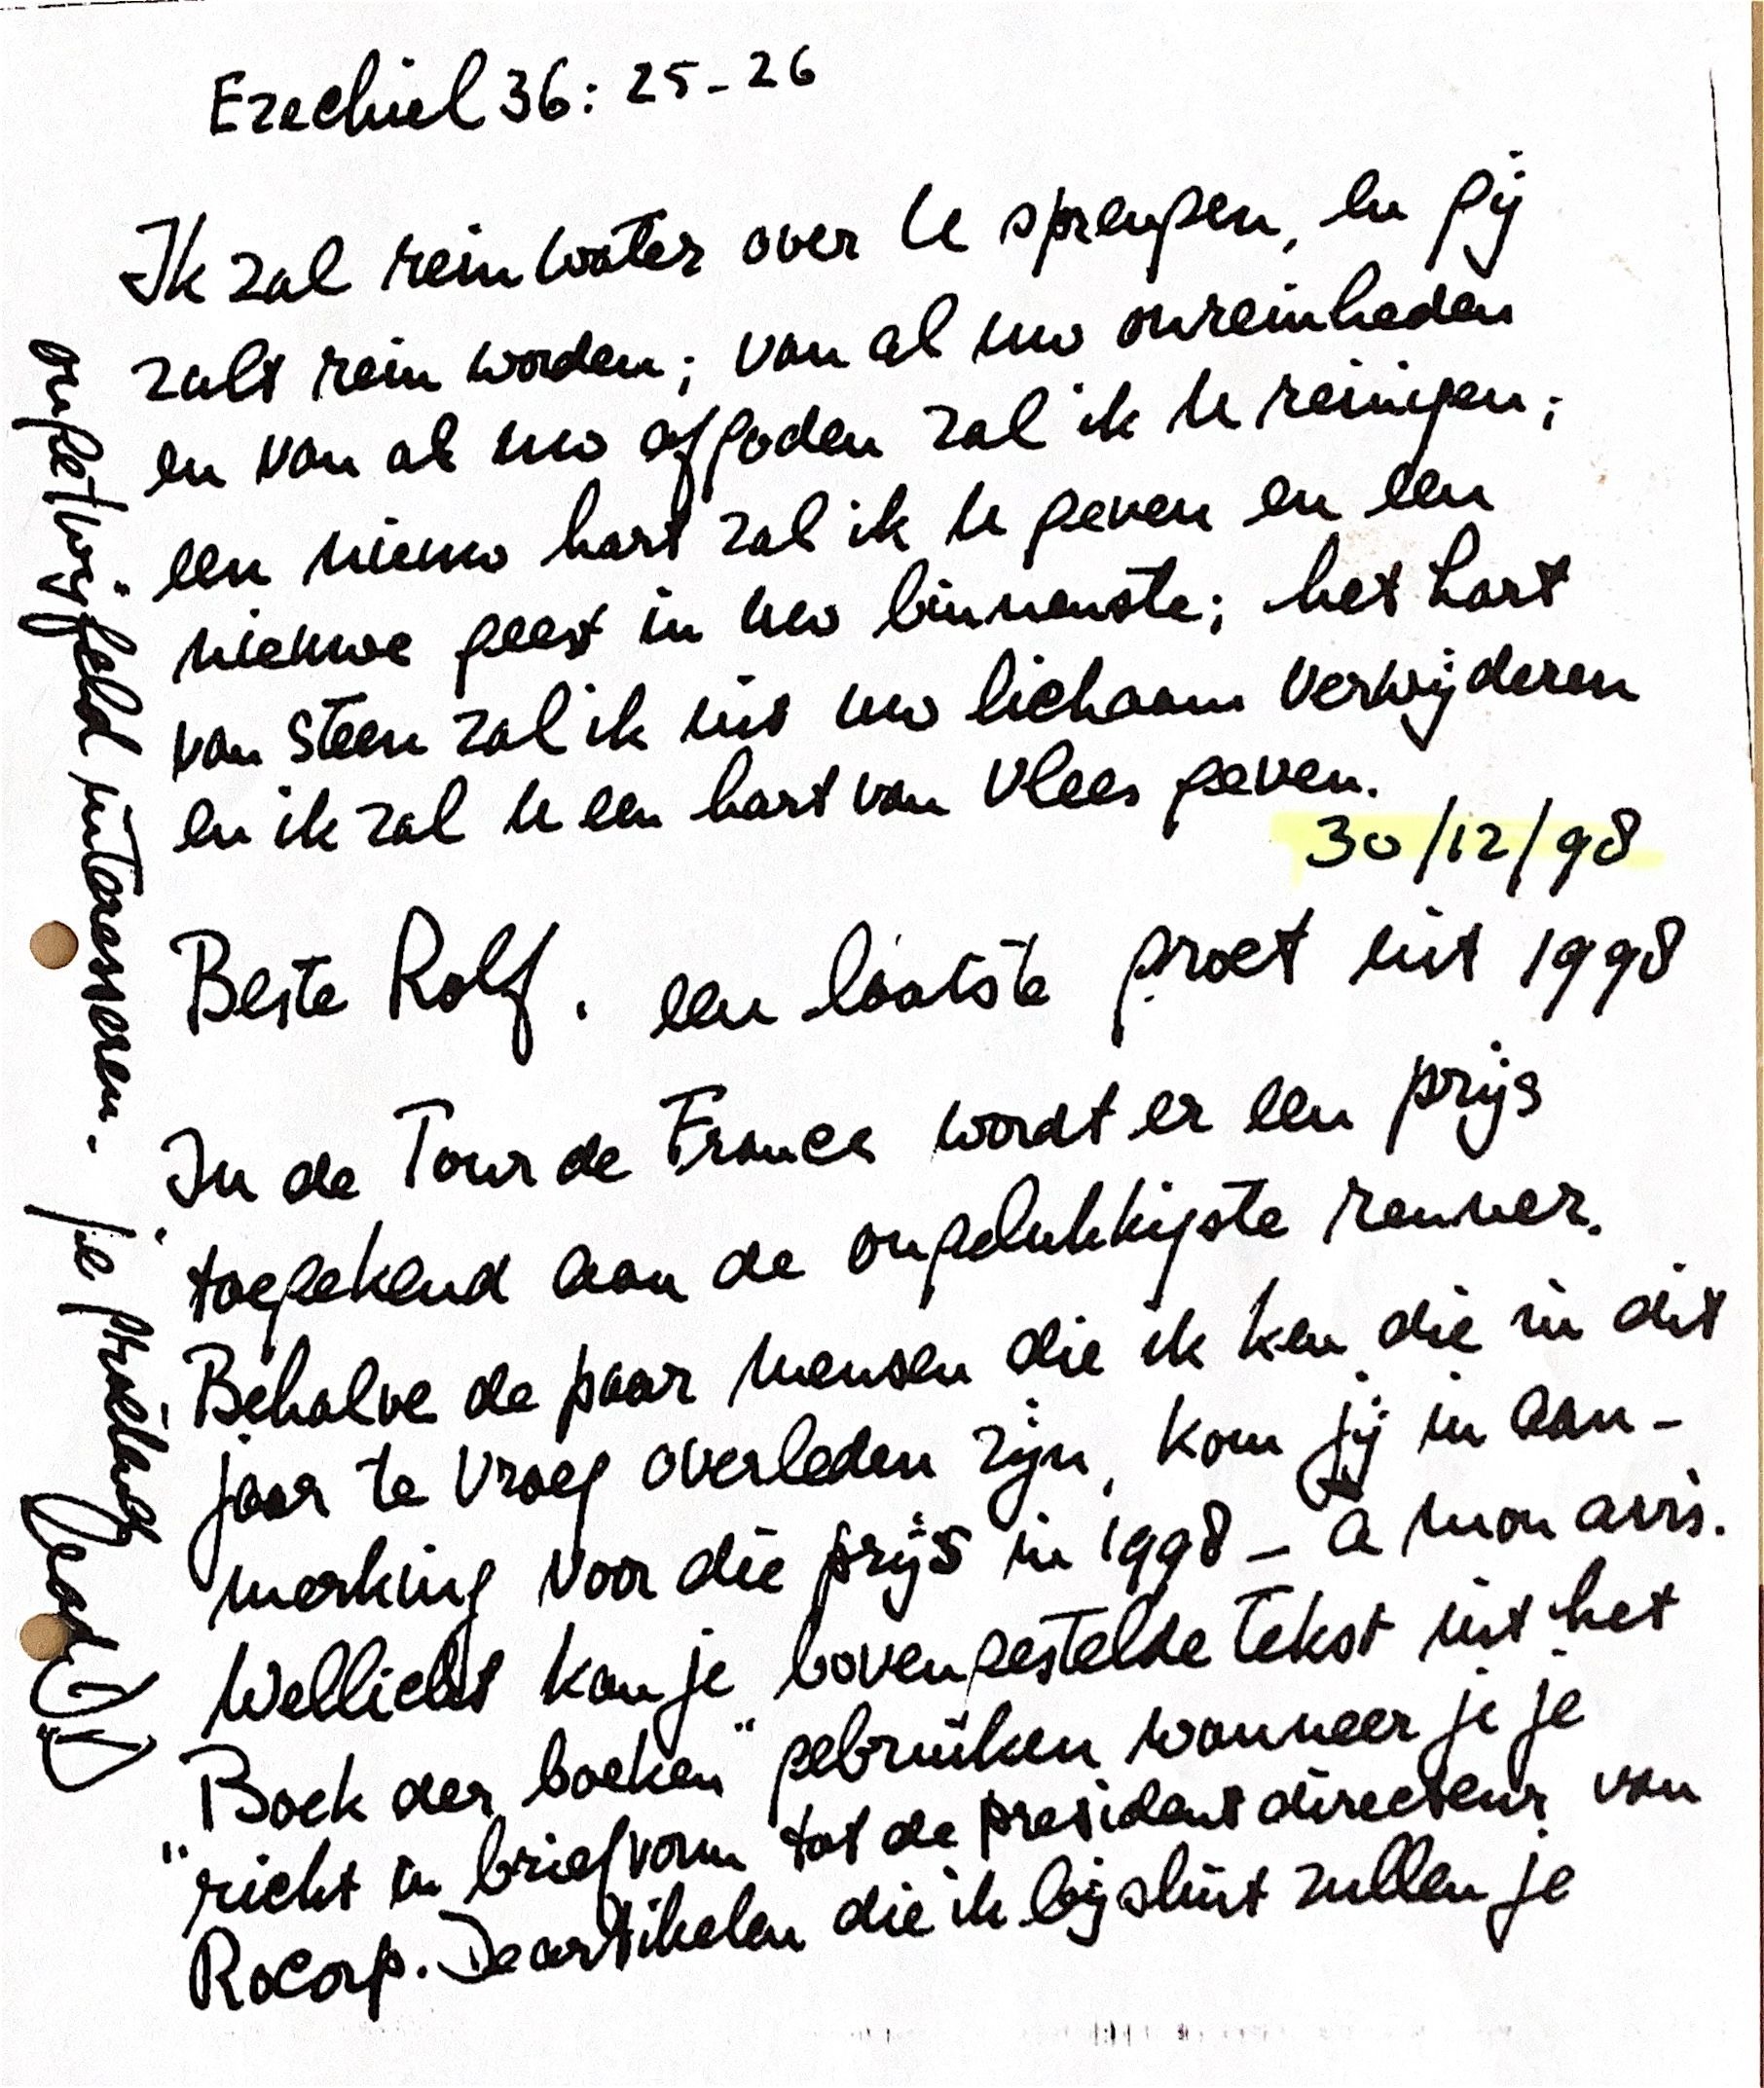 Ezechiel 36: 25-26
Ik zal rein water over U sprengen, en gij
zult rein worden; van al uw onreinheden
en van al uw afgoden zal ik U reinigen;
een nieuw hart zal ik U geven en een
nieuwe geest in uw binnenste; het hart
van steen zal ik uit uw lichaam verwijderen
en ik zal U een hart van vlees geven.
30/12/98
Beste Rolf. een laatste groet uit 1998
In de Tour de France wordt er een prijs
toegekend aan de ongelukkigste renner.
Behalve de paar mensen die ik ken die in dit
jaar te vroeg overleden zijn, kom jij in aan-
merking voor die prijs in 1998 - à mon avis.
Wellicht kan je bovengestelde tekst uit het
Boek der boeken" gebruiken wanneer je je
"richt in briefvorm tot de president directeur van
Rocorp. De artikelen die ik bijsluit zullen je
ongetwijfeld interesseren. je